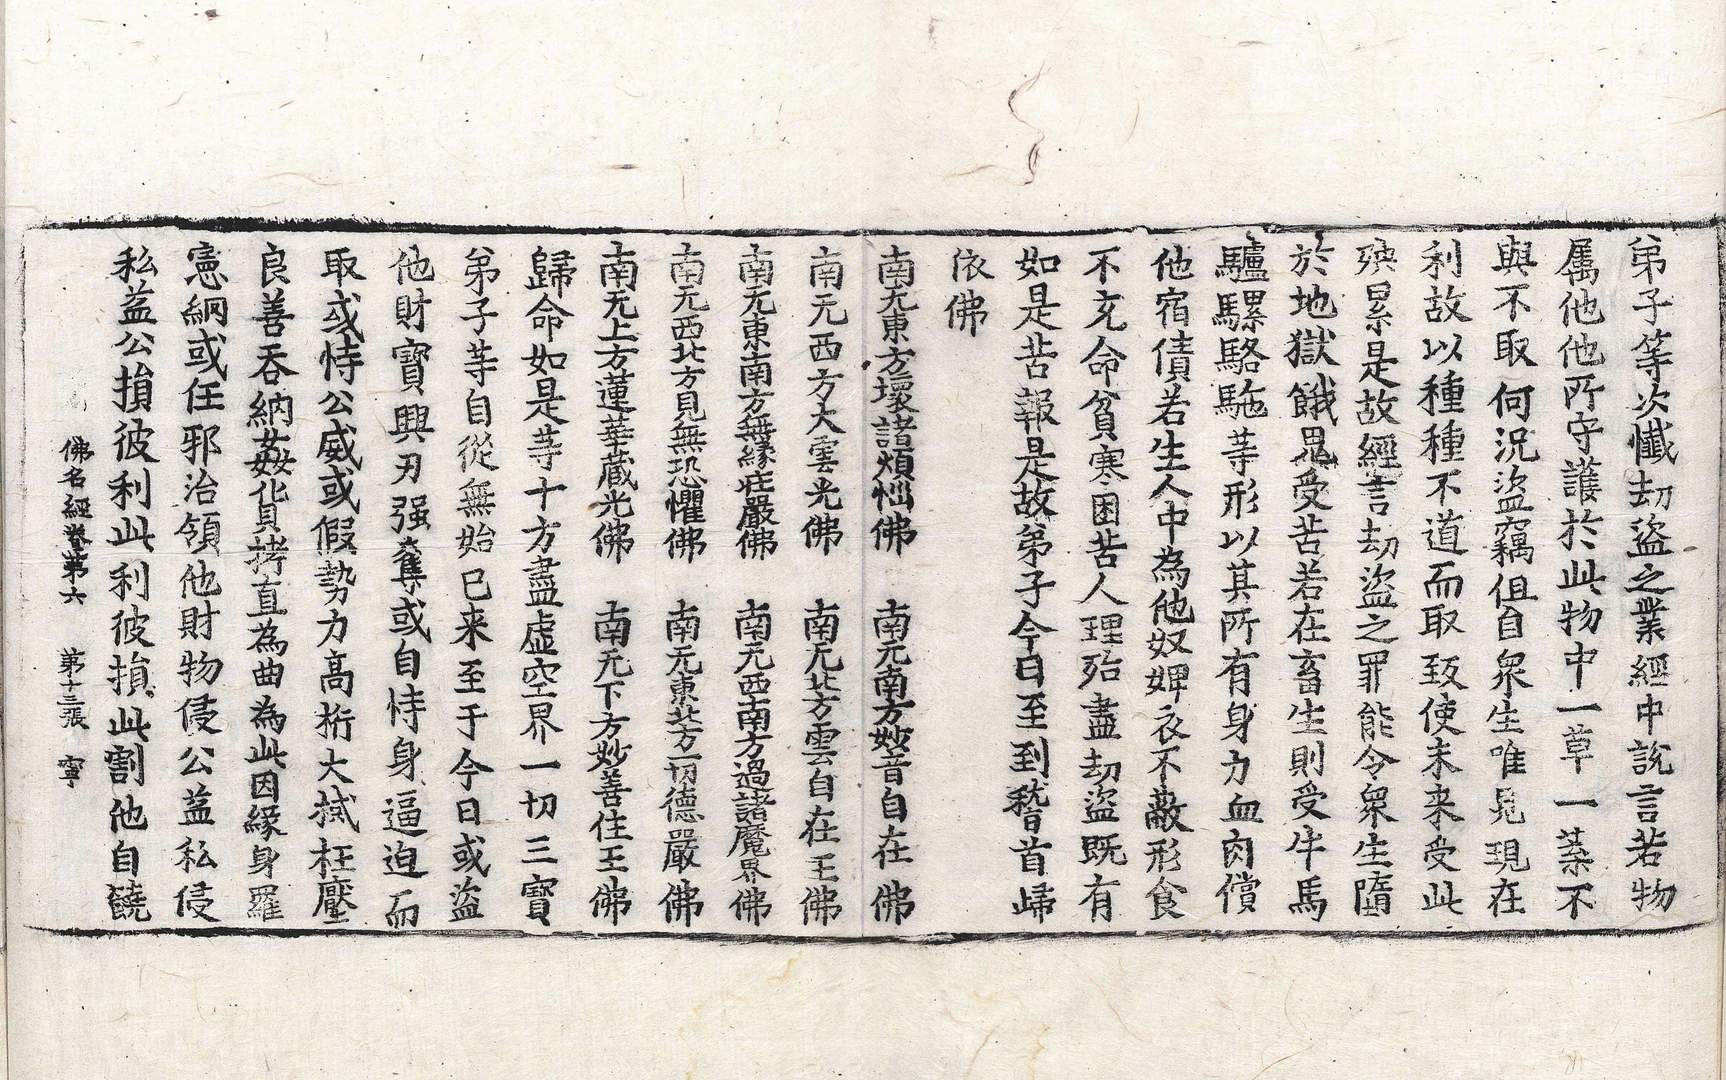 弟子等次懺劫盜之業經中說言若物
属他他所守護於此物中一草一葉不
與不取何況盜竊但自衆生唯見現在
利故以種種不道而取致使未来受此
殃累是故經言劫盜之罪能令衆生墮
於地獄餓鬼受苦若在畜生則受牛馬
驢騾駱駞等形以其所有身力血肉償
他宿債若生人中為他奴婢衣不蔽形食
不充命貧寒困苦人理殆盡劫盜既有
如是苦報是故弟子今日至到稽首歸
依佛
南无東方壞諸煩惱佛　南无南方妙音自在佛
南无西方大雲光佛　南无北方雲自在王佛
南无東南方無緣莊嚴佛　南无西南方過諸魔界佛
南无西北方見無恐懼佛　南无東北方一切德嚴佛
南无上方蓮華藏光佛　南无下方妙善住王佛
歸命如是等十方盡虛空界一切三寶
弟子等自從無始已来至于今日或盜
他財寶興刃强奪或自恃身逼迫而
取或恃公威或假勢力高桁大械枉壓
良善吞納姦貨拷直為曲為此因緣身羅
憲網或任邪治領他財物侵公益私侵
私益公損彼利此利彼損此割他自饒
佛名經卷第六　第十三張　寧